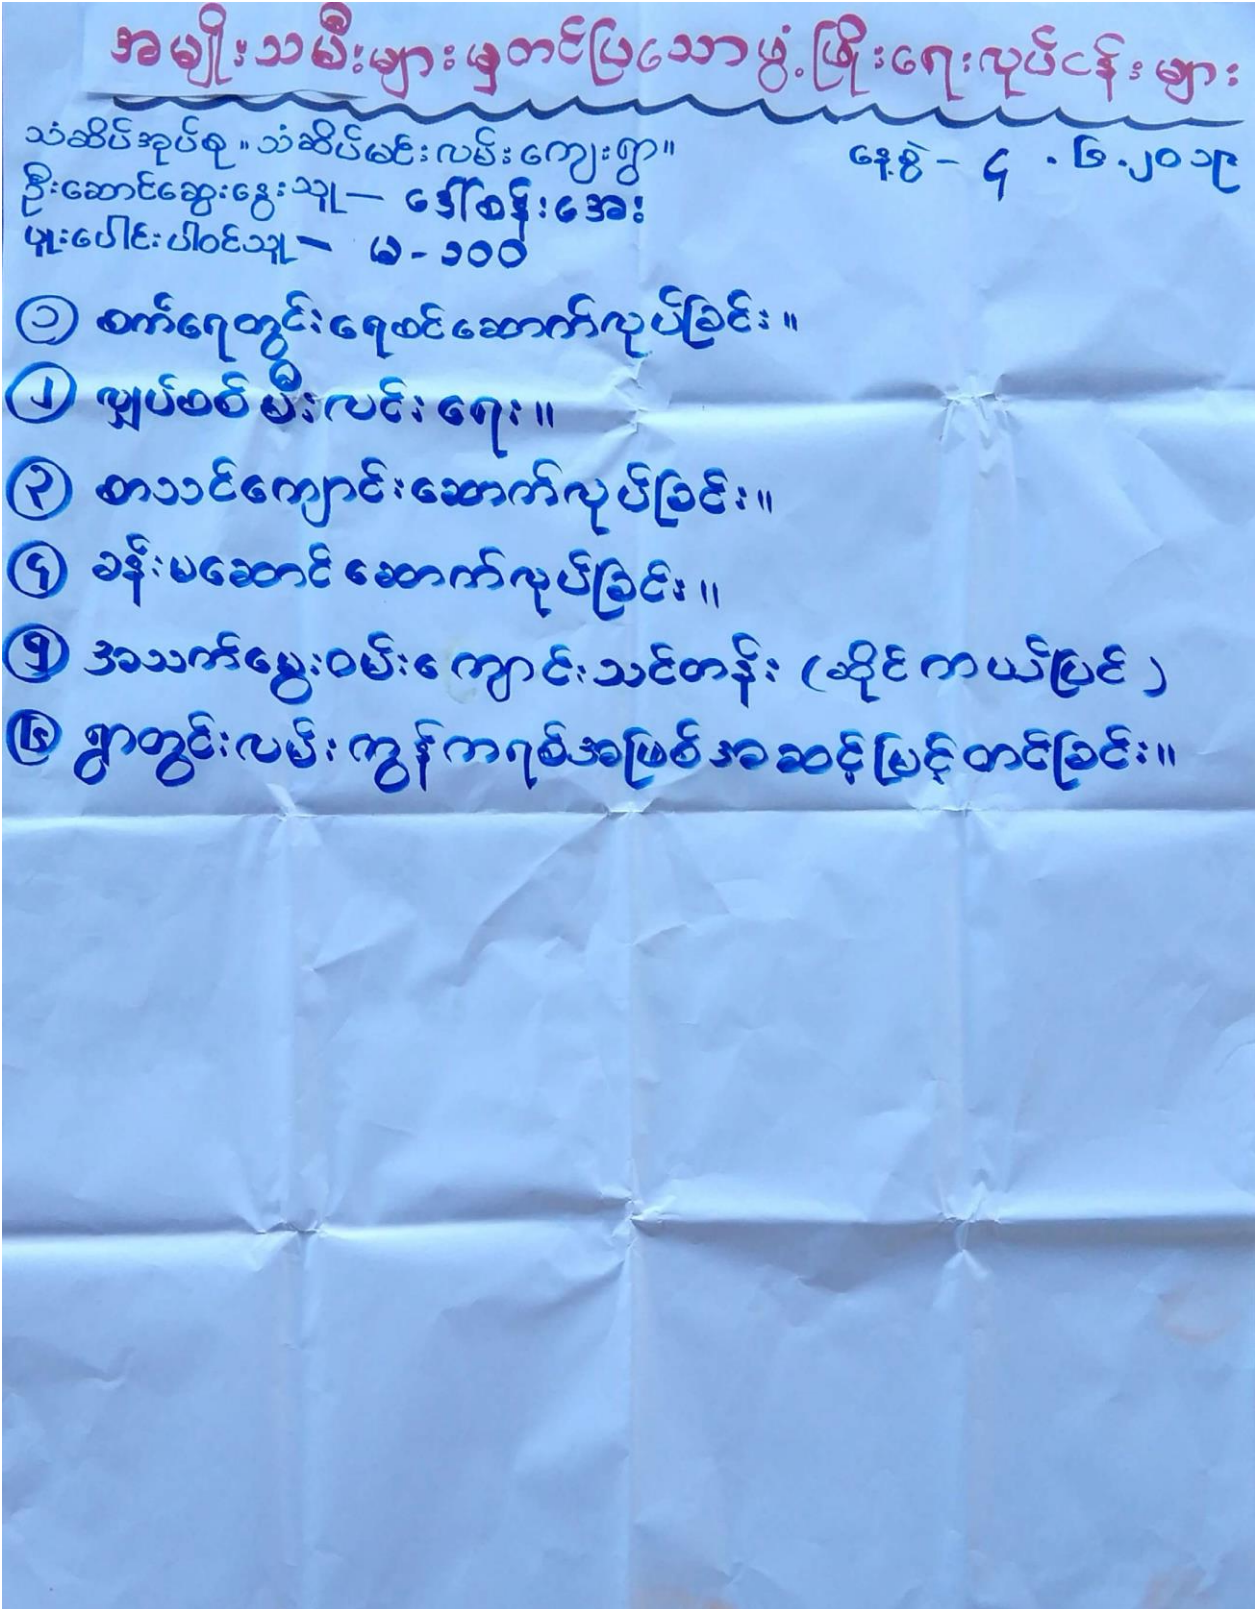 အမျိုးသမီးများမှတင်ပြသောဖွံ့ဖြိုးရေးလုပ်ငန်းများ
သံဆိပ်အုပ်စု။သံဆိပ်မင်းလမ်းကျေးရွာ။
နေ့စွဲ - ၄.၆.၂၀၁၉
ဦးဆောင်ဆွေးနွေးသူ - ဒေါ်စန်းအေး
ပူးပေါင်းပါဝင်သူ - မ-၁၀၀
၁ စက်ရေတွင်းရေစင်ဆောက်လုပ်ခြင်း။
၂ လျှပ်စစ်မီးလင်းရေး။
၃ စာသင်ကျောင်းဆောက်လုပ်ခြင်း။
၄ ခန်းမဆောင်ဆောက်လုပ်ခြင်း။
၅ အသက်မွေးဝမ်းကျောင်းသင်တန်း (ဆိုင်ကယ်ပြင်)
၆ ရွာတွင်းလမ်းကွန်ကရစ်အဖြစ်အဆင့်မြင့်တင်ခြင်း။